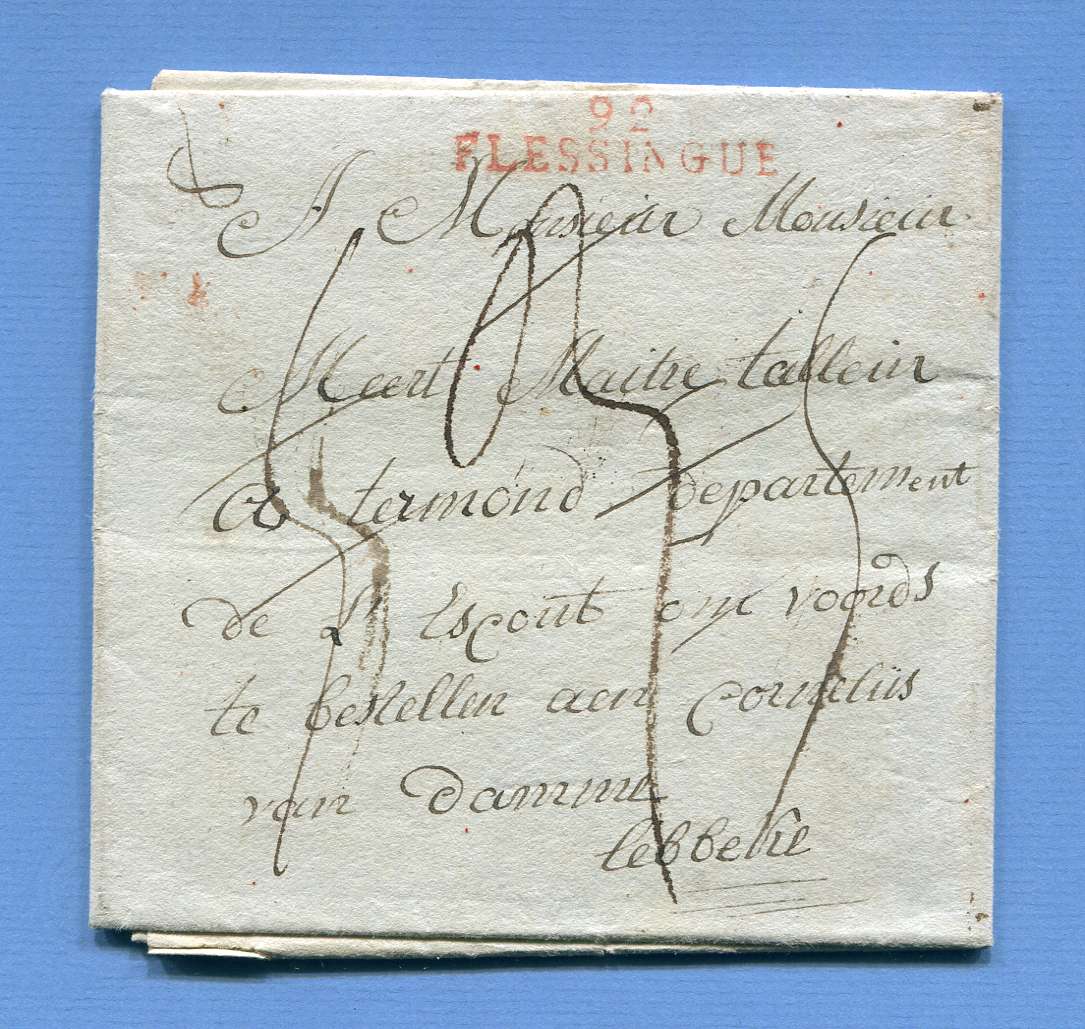 92
FLESSINGUE
A Monsieur Monsieur
Meert Maitre tallein
a termond departement
de L'Escout om voords
te bestellen aen Cornelüs
van Damme
lebbeke